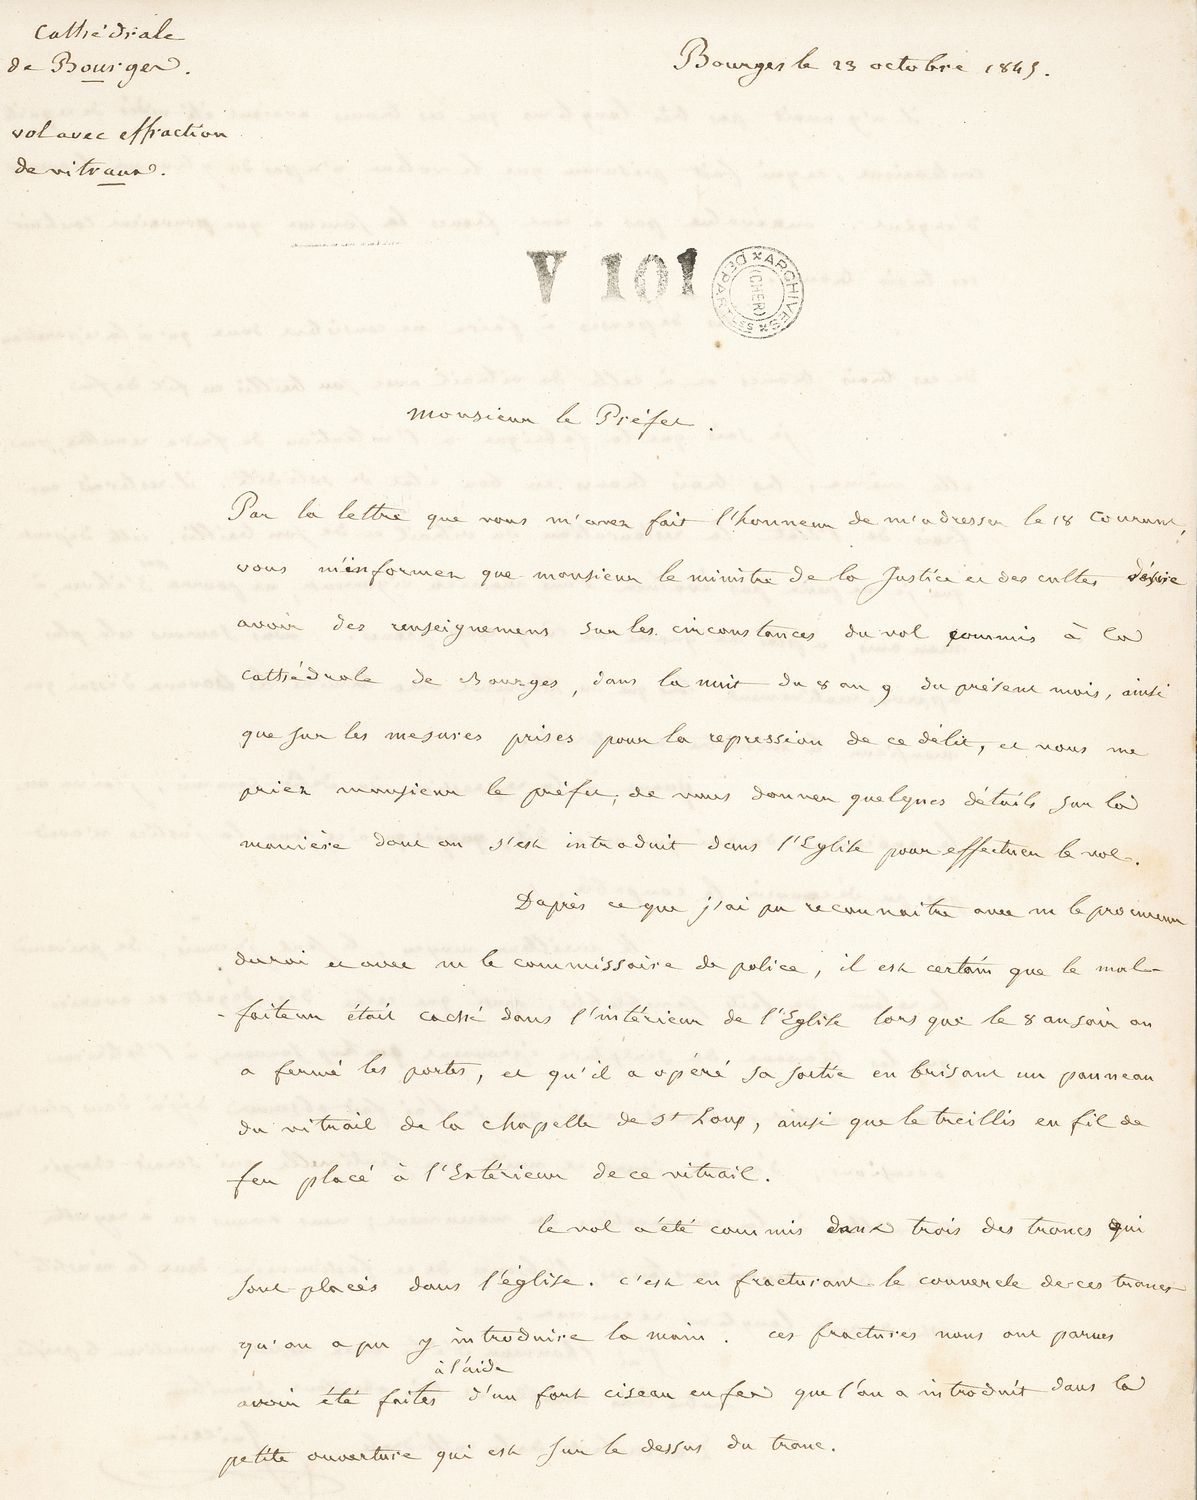 Cathédrale
de Bourges.
vol avec effraction
de vitraux.
Bourges le 23 octobre 1845.
V 101
ARCHIVES DEPARTALES
(CHER)
Monsieur le Préfet.
Par la lettre que vous m'avez fait l'honneur de m'adresser le 18 courant,
vous m'informez que monsieur le ministre de la Justice et des cultes désire
avoir des renseignemens sur les circonstances du vol commis à la
cathédrale de Bourges, dans la nuit du 8 au 9 du présent mois, ainsi
que sur les mesures prises pour la repression de ce délit, et vous me
priez monsieur le préfet, de vous donner quelques détails sur la
manière dont on s'est introduit dans l'Eglise pour effectuer le vol.
D'après ce que j'ai pu reconnaitre avec m le procureur
du roi et avec m le commissaire de police, il est certain que le mal-
-faiteur était caché dans l'intérieur de l'Eglise lors que le 8 au soir on
a fermé les portes, et qu'il a opéré sa sortie en brisant un panneau
du vitrail de la chapelle de St Loup, ainsi que le treillis en fil de
fer placé à l'Extérieur de ce vitrail.
le vol a été commis dans trois des troncs qui
sont placés dans l'église. c'est en fracturant le couvercle de ces troncs
qu'on a pu y introduire la main. ces fractures nous ont parues
avoir été faites à l'aide d'un fort ciseau en fer que l'on a introduit dans la
petite ouverture qui est sur le dessus du tronc.